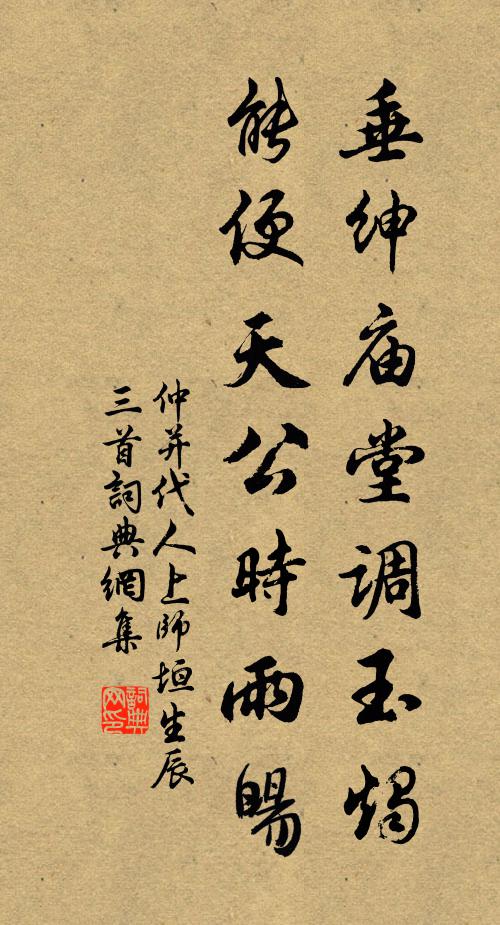 垂绅庙堂调玉烛
能使天公時雨暘
仲并代人上師垣生辰
三首詞典網集
詞典网印